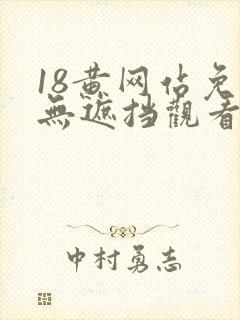 18黄网佔免
無遮挡觀看
中村勇志